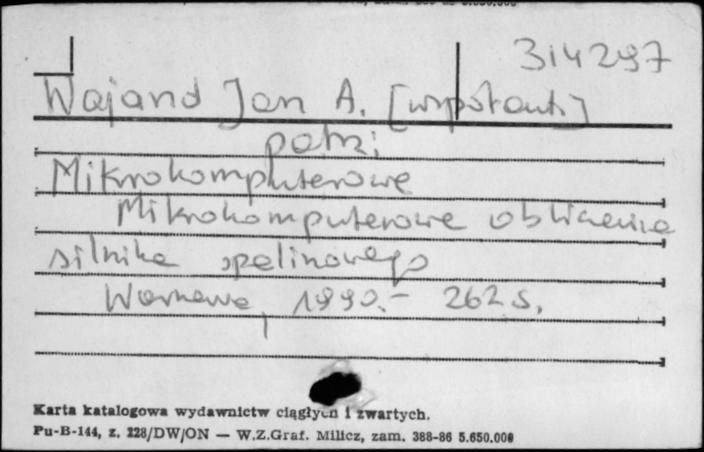 314297
Wajand Jan A. [współaut.]
patrz:
Mikrokomputerowe
Mikrokomputerowe obliczenia
silnika spalinowego
Warszawa, 1990.- 262 s.
Karta katalogowa wydawnictw ciągłych i zwartych.
Pu-B-144, z. 228/DW/ON — W.Z.Graf. Milicz, zam. 388-86 5.650.000